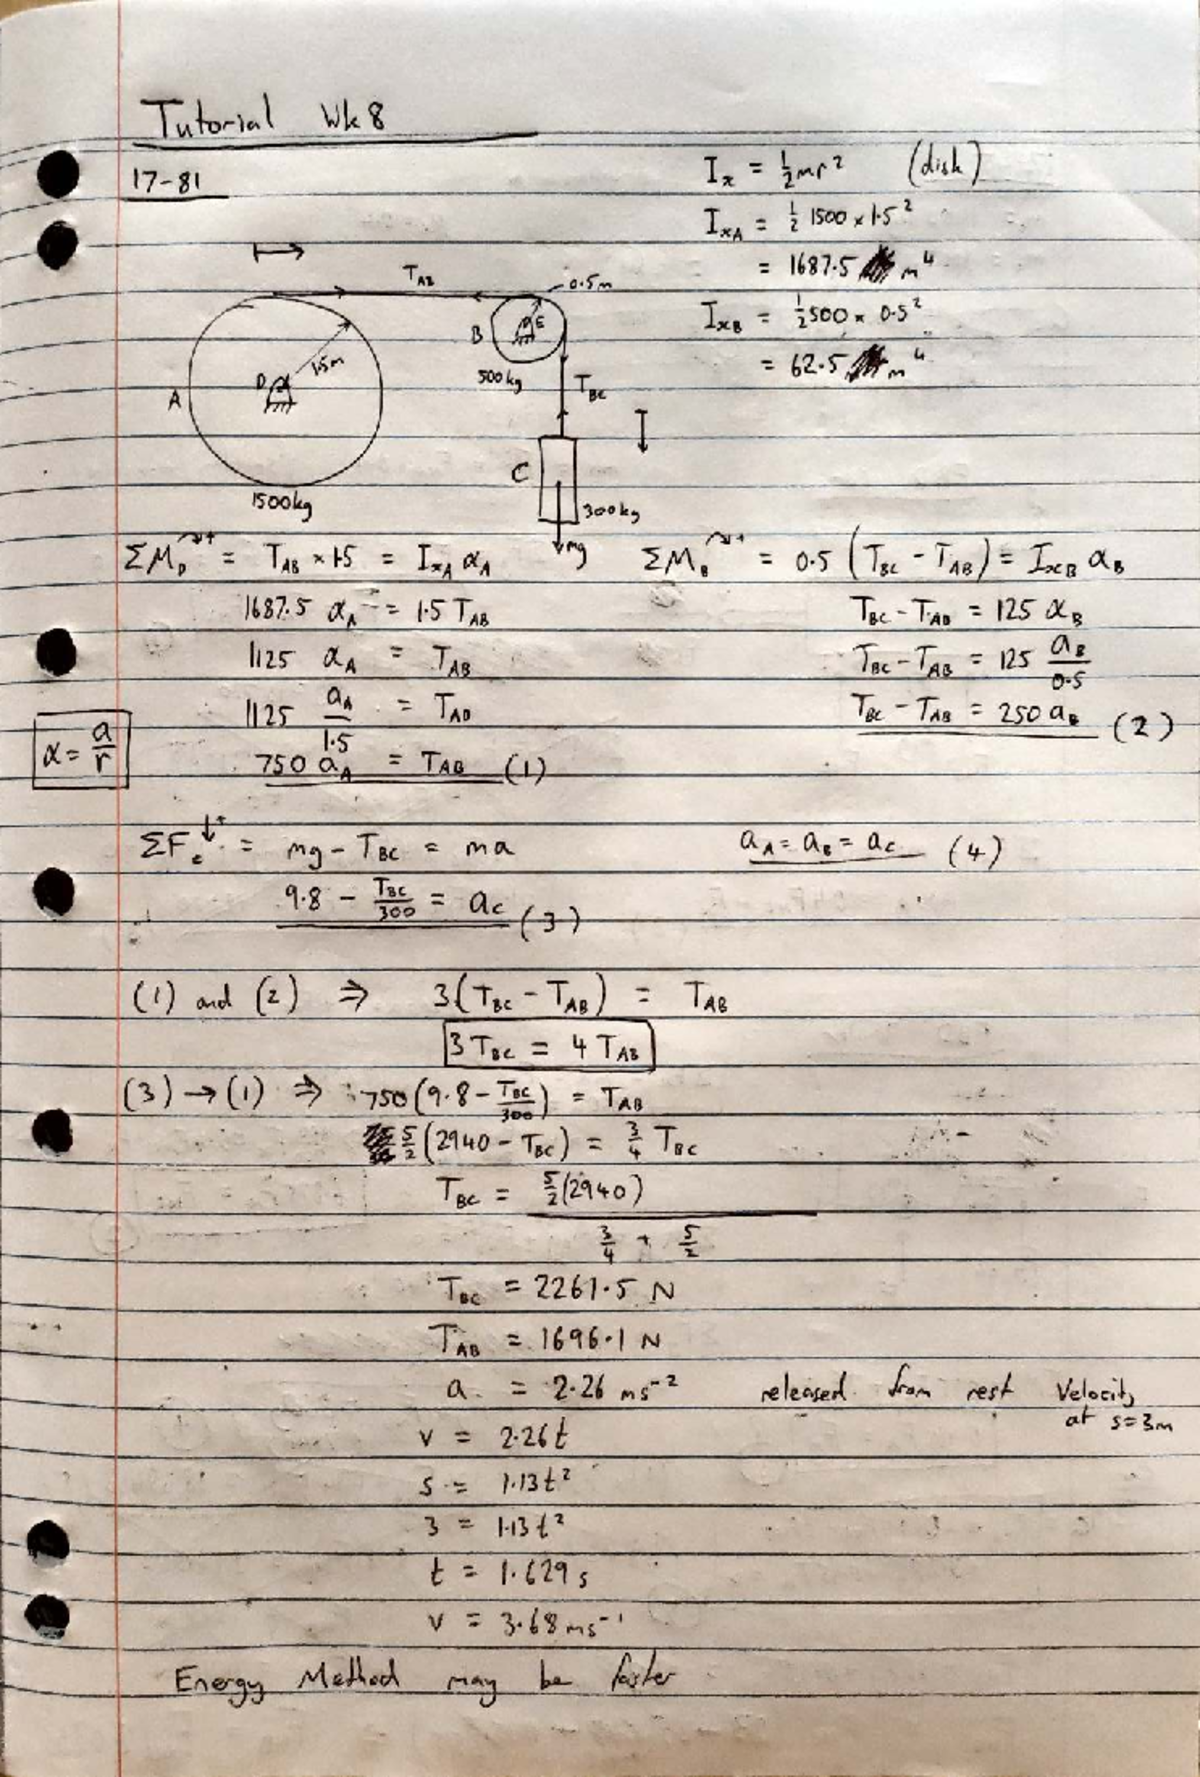 Tutorial Wk 8
17-81
Iₓ = ½mr² (disk)
IₓA = ½ 1500 × 1.5²
= 1687.5 m⁴
IₓB = ½500 × 0.5²
= 62.5 m⁴
T_AB
0.5m
B
E
500kg
T_BC
1.5m
D
A
1500kg
C
300kg
mg
ΣM_D ↷+ = T_AB × 1.5 = IₓA α_A
1687.5 α_A = 1.5 T_AB
1125 α_A = T_AB
1125 a_A/1.5 = T_AB
750 a_A = T_AB (1)
α = a/r
ΣM_B ↷+ = 0.5 (T_BC - T_AB) = IₓB α_B
T_BC - T_AB = 125 α_B
T_BC - T_AB = 125 a_B/0.5
T_BC - T_AB = 250 a_B (2)
ΣF_c ↓+ = mg - T_BC = ma
9.8 - T_BC/300 = a_c (3)
a_A = a_B = a_c (4)
(1) and (2) ⇒ 3(T_BC - T_AB) = T_AB
3 T_BC = 4 T_AB
(3) → (1) ⇒ 750(9.8 - T_BC/300) = T_AB
5/2 (2940 - T_BC) = 3/4 T_BC
T_BC = 5/2(2940)
3/4 + 5/2
T_BC = 2261.5 N
T_AB = 1696.1 N
a = 2.26 ms⁻² released from rest Velocity
at s=3m
v = 2.26t
s = 1.13t²
3 = 1.13t²
t = 1.629s
v = 3.68ms⁻¹
Energy Method may be faster